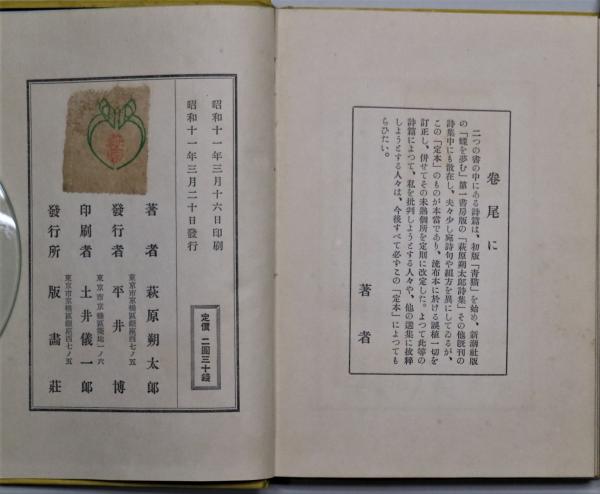 卷尾に
二つの書の中にある詩篇は、初版「青猫」を始め、新潮社版
の「蝶を夢む」第一書房版の「萩原朔太郎詩集」その他既刊の
詩集中にも散在し、夫々少し宛詩句や組方を異にしてゐるが、
この「定本」のものが本當であり、流布本に於ける誤植一切を
訂正し、併せてその未熟個所を定則に改定した。よつて此等の
詩篇によつて、私を批判しようとする人々や、他の選集に拔粹
しようとする人々は、今後すべて必ずこの「定本」によつても
らひたい。
著者
昭和十一年三月十六日印刷
昭和十一年三月二十日發行
定價 二圓三十錢
著者 萩原朔太郎
東京市京橋區銀座西七ノ五
發行者 平井博
東京市京橋區築地一ノ六
印刷者 土井儀一郎
東京市京橋區銀座西七ノ五
發行所 版畫莊